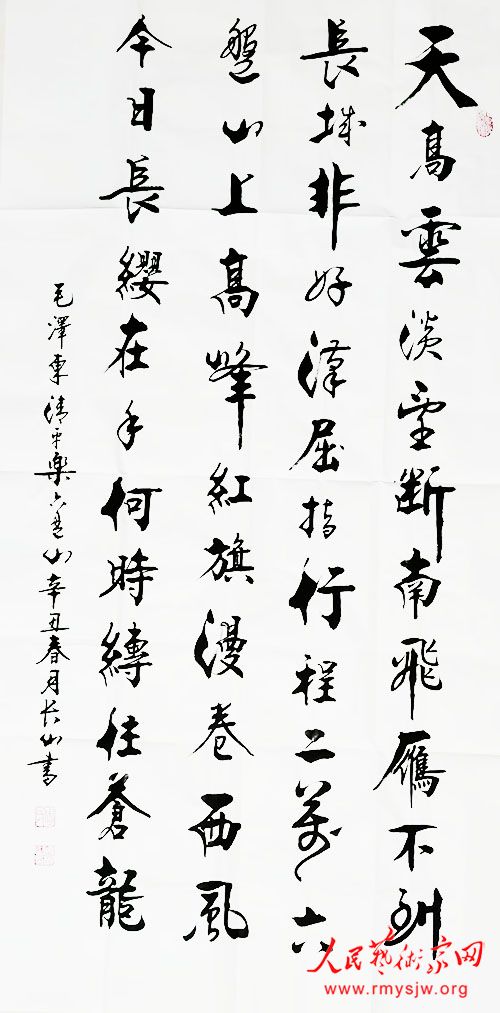 天高雲淡望斷南飛雁不到
長城非好漢屈指行程二萬六
盤山上高峰紅旗漫卷西風
今日長纓在手何時縛住蒼龍
毛澤東清平樂六盤山辛丑春月長山書
人民藝術家网
www.rmysjw.org